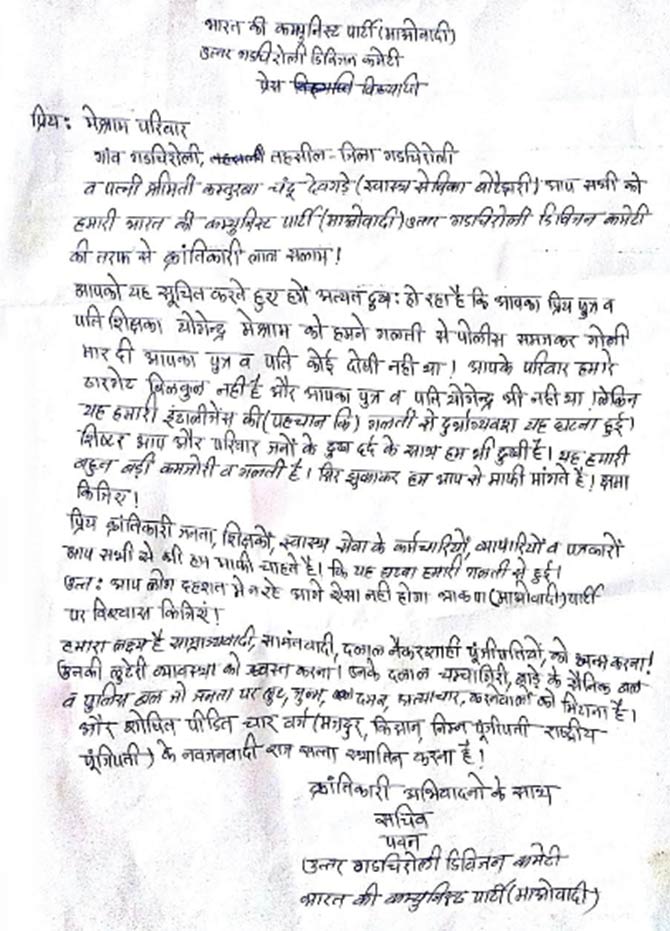 भारत की कम्युनिस्ट पार्टी (माओवादी)
उत्तर गडचिरोली डिविजन कमेटी
प्रेस विज्ञाप्ती
प्रिय: मेश्राम परिवार
गांव गडचिरोली, तहसील-जिला गडचिरोली
व पत्नी श्रीमिती कस्तुरबा चंदू देवगडे (स्वास्थ सेविका बोटेझरी) आप सभी को
हमारी भारत की कम्युनिस्ट पार्टी (माओवादी) उत्तर गडचिरोली डिविजन कमेटी
की तरफ से क्रांतिकारी लाल सलाम!
आपको यह सूचित करते हुए हमें अत्यंत दुख: हो रहा है कि आपका प्रिय पुत्र व
पति शिक्षका योगेन्द्र मेश्राम को हमने गलती से पोलीस समजकर गोली
मार दी आपका पुत्र व पति कोई दोषी नही था! आपके परिवार हमारे
टारगेट बिलकुल नही है और आपका पुत्र व पति योगेन्द्र भी नही था! लेकिन
यह हमारी इंटालीजेंस की (पहचान कि) गलती से दुर्भाग्यवश यह घटना हुई।
शिष्टर आप और परिवार जनों के दुख दर्द के साथ हम भी दुखी है। यह हमारी
बहुत बड़ी कमजोरी व गलती है। सिर झुकाकर हम आप से माफी मांगते है! क्षमा
किजिए!
प्रिय क्रांतिकारी जनता, शिक्षकों, स्वास्थ सेवा के कर्मचारियों, व्यापारियों व पत्रकारों
आप सभी से भी हम माफी चाहते है। कि यह घटना हमारी गलती से हुई।
अत: आप लोग दहशत मे न रहे आगे ऐसा नही होगा भाकपा (माओवादी) पार्टी
पर विश्वास किजिएं!
हमारा लक्ष्य है साम्राज्यवादी, सामंतवादी, दलाल नौकरशाही पूंजीपतियों, को खत्म करना!
उनकी लुटेरी व्यवस्था को ध्वस्त करना। उनके दलाल चमचागिरी, भाड़े के सैनिक बल
व पुलिस बल जो जनता पर लुट, जुल्म, दमन, अत्याचार, करनेवालों को मिटाना है।
और शोषित पीडित चार वर्ग (मजदुर, किसान, निम्न पूंजीपती राष्ट्रीय
पूंजिपती) के नवजनवादी राज सत्ता स्थापित करना है!
क्रांतिकारी अभिवादनो के साथ
सचिव
पवन
उत्तर गडचिरोली डिविजन कमेटी
भारत की कम्युनिस्ट पार्टी (माओवादी)